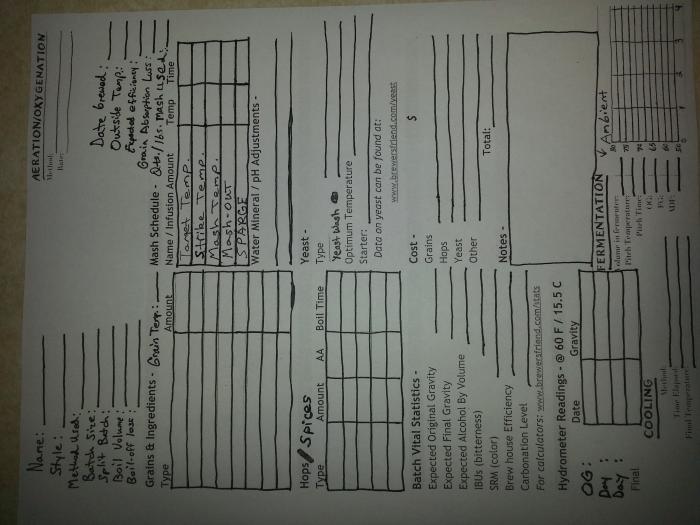 Name:
Style:
Method Used:
Batch Size:
Split Batch:
Boil Volume:
Boil-off loss:
AERATION/OXYGENATION
Method:
Rate:
Date brewed:
Outside Temp:
Expected efficiency:
Grain Absorption Loss:
Qts./lbs. mash used:
Grains & Ingredients - Grain Temp:
Type Amount
Mash Schedule -
Name / Infusion Amount Temp Time
Target Temp.
Strike Temp.
Mash Temp.
Mash-out
SPARGE
Water Mineral / pH Adjustments -
Hops/Spices
Type Amount AA Boil Time
Yeast -
Type
Yeast Wash
Optimum Temperature
Starter:
Data on yeast can be found at:
www.brewersfriend.com/yeast
Batch Vital Statistics -
Expected Original Gravity
Expected Final Gravity
Expected Alcohol By Volume
IBUs (bitterness)
SRM (color)
Brew house Efficiency
Carbonation Level
For calculators: www.brewersfriend.com/stats
Cost - $
Grains
Hops
Yeast
Other
Total:
Notes -
Hydrometer Readings - @ 60 F / 15.5 C
Date Gravity
OG:
Day :
Day :
Final
COOLING
Method:
Time Elapsed:
Final Temperature:
FERMENTATION ↓ Ambient
Volume in Fermenter:
Pitch Temperature:
Pitch Time:
OG:
FG:
80
75
70
65
60
50
1 2 3 4